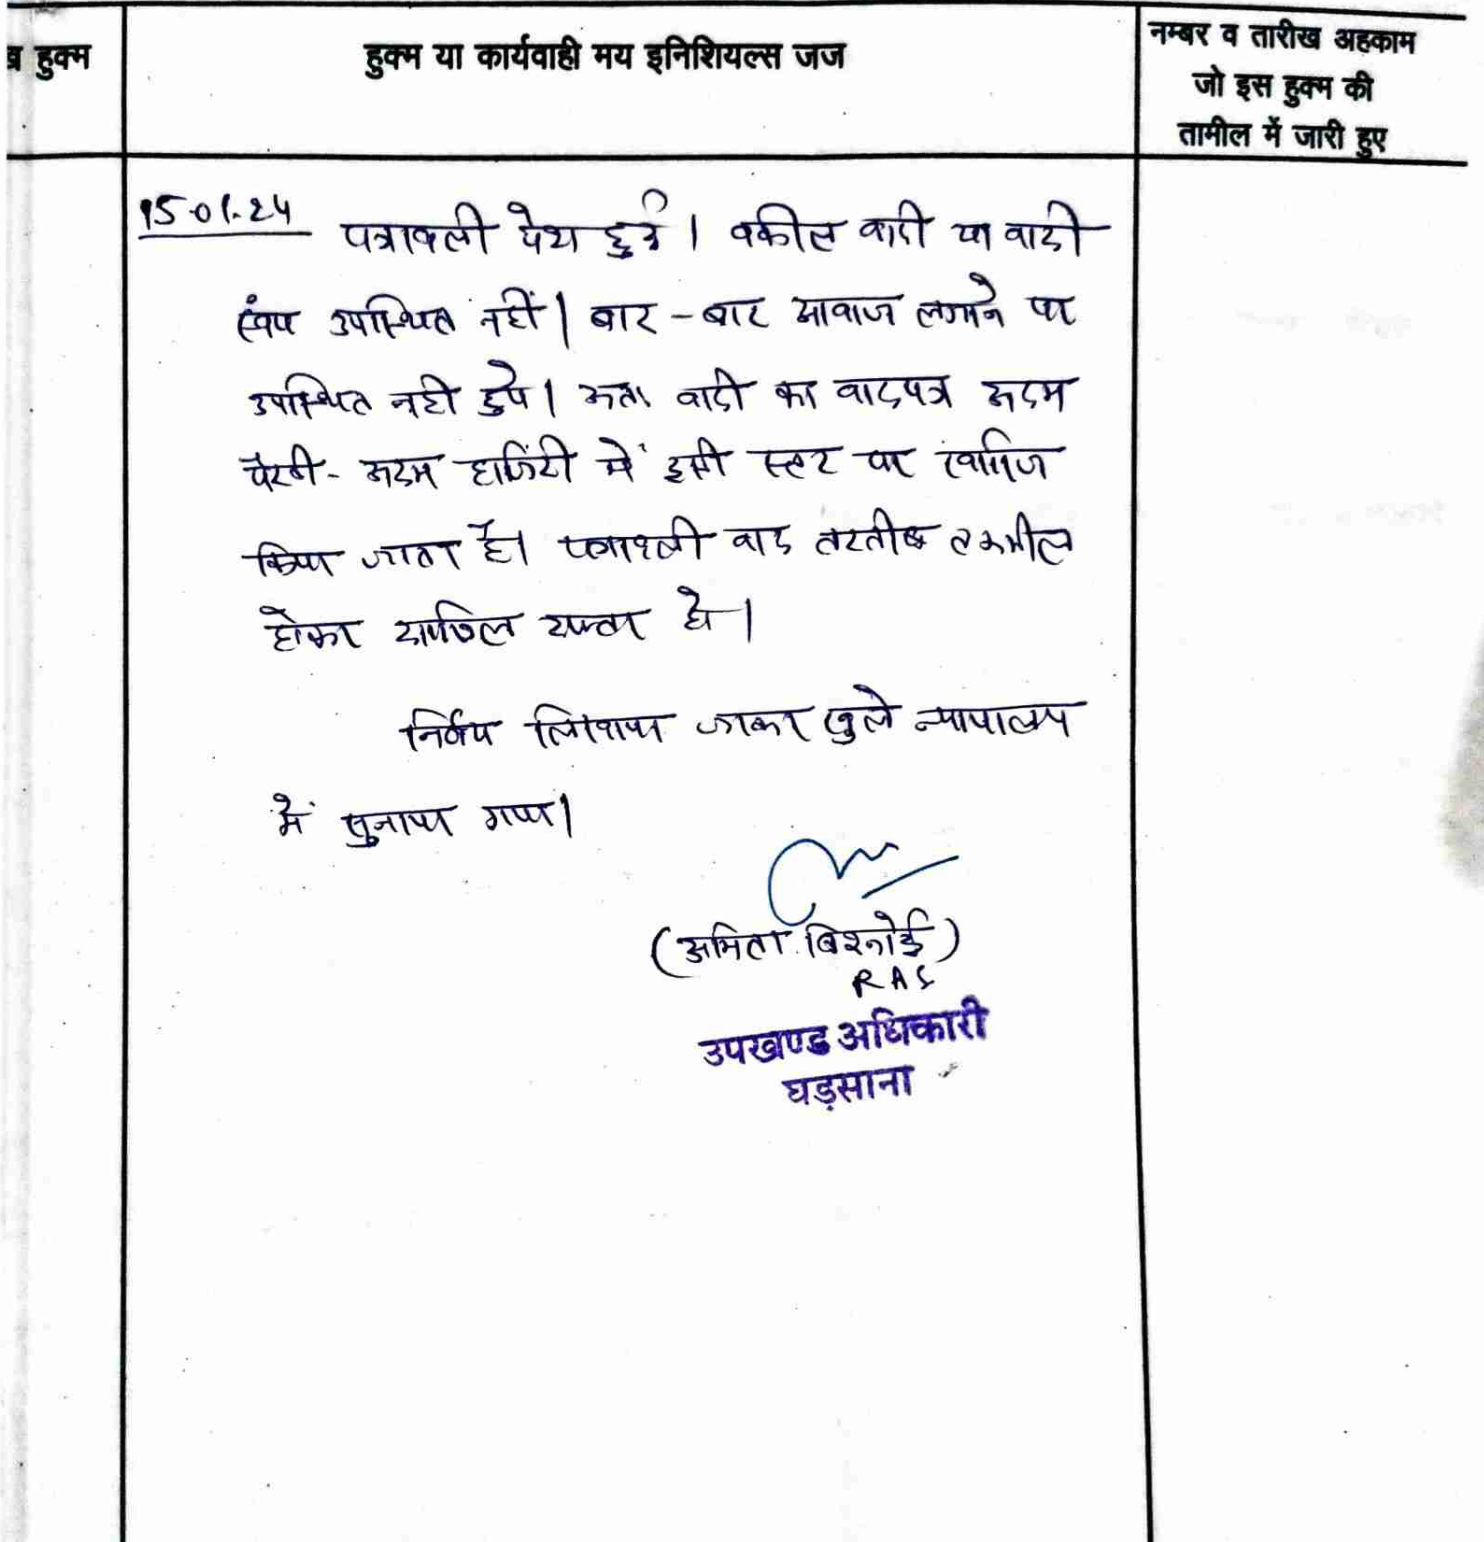 हुक्म
हुक्म या कार्यवाही मय इनिशियल्स जज
नम्बर व तारीख अहकाम
जो इस हुक्म की
तामील में जारी हुए
15-01-24 पत्रावली पेश हुई। वकील वादी या वादी
स्वंय उपस्थित नहीं। बार-बार आवाज लगाने पर
उपस्थित नही हुये। अतः वादी का वादपत्र अदम
पैरवी- अदम हाजिरी में इसी स्तर पर खारिज
किया जाता है। पत्रावली बाद तरतीब तकमील
होकर दाखिल दफ्तर हो।
निर्णय लिखाया जाकर खुले न्यायालय
में सुनाया गया।
(अमिता बिश्नोई)
RAS
उपखण्ड अधिकारी
घड़साना